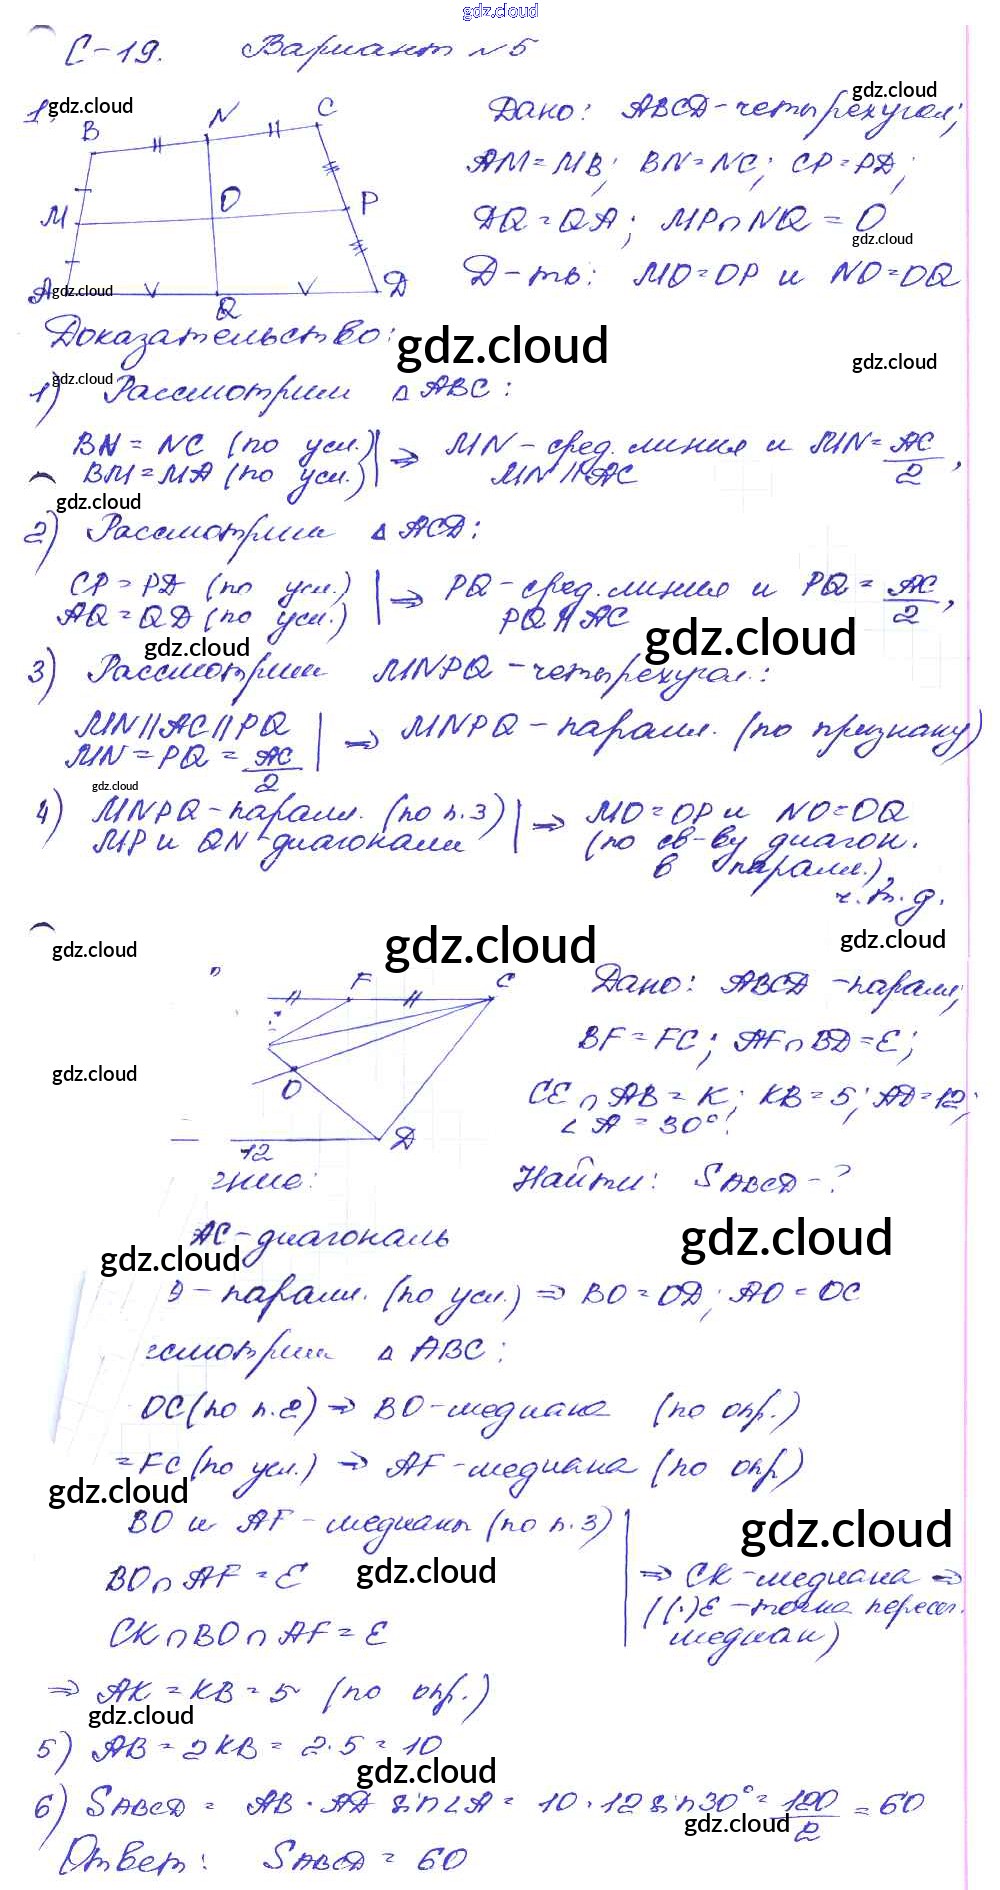 gdz.cloud
С-19. Вариант №5
1. gdz.cloud
B N C M O P A Q D
Дано: ABCD-четырехугол;
gdz.cloud
AM=MB; BN=NC; CP=PD;
DQ=QA; MP∩NQ=O
gdz.cloud
Д-ть: MO=OP и NO=OQ
gdz.cloud
Доказательство:
gdz.cloud
gdz.cloud
gdz.cloud
1) Рассмотрим △ABC:
BN=NC (по усл.) | ⇒ MN-сред. линия и MN=AC/2,
BM=MA (по усл.) | MN||AC
gdz.cloud
2) Рассмотрим △ACD:
CP=PD (по усл.) | ⇒ PQ-сред. линия и PQ=AC/2,
AQ=QD (по усл.) | PQ||AC
gdz.cloud
gdz.cloud
3) Рассмотрим MNPQ-четырехугол.:
MN||AC||PQ | ⇒ MNPQ-паралл. (по признаку)
MN=PQ=AC/2
gdz.cloud
4) MNPQ-паралл. (по п.3) | ⇒ MO=OP и NO=OQ
MP и QN-диагонали | (по св-ву диагон.
в паралл.),
ч.т.д.
gdz.cloud
gdz.cloud
gdz.cloud
F C O D 12
Дано: ABCD-паралл;
BF=FC; AF∩BD=E;
gdz.cloud
CE∩AB=K; KB=5; AD=12;
∠A=30°.
ение: Найти: SABCD-?
AC-диагональ
gdz.cloud
gdz.cloud
D-паралл. (по усл.) ⇒ BO=OD; AO=OC
смотрим △ABC:
OC (по п.2) ⇒ BO-медиана (по опр.)
=FC (по усл.) ⇒ AF-медиана (по опр)
gdz.cloud
BO и AF-медианы (по п.3) |
gdz.cloud
BO∩AF=E | ⇒ CK-медиана ⇒
gdz.cloud
((·)E-точка пересеч.
CK∩BO∩AF=E | медиан)
⇒ AK=KB=5 (по опр.)
gdz.cloud
5) AB=2KB=2·5=10
gdz.cloud
6) SABCD=AB·AD sin∠A=10·12 sin30°=120/2=60
gdz.cloud
Ответ: SABCD=60